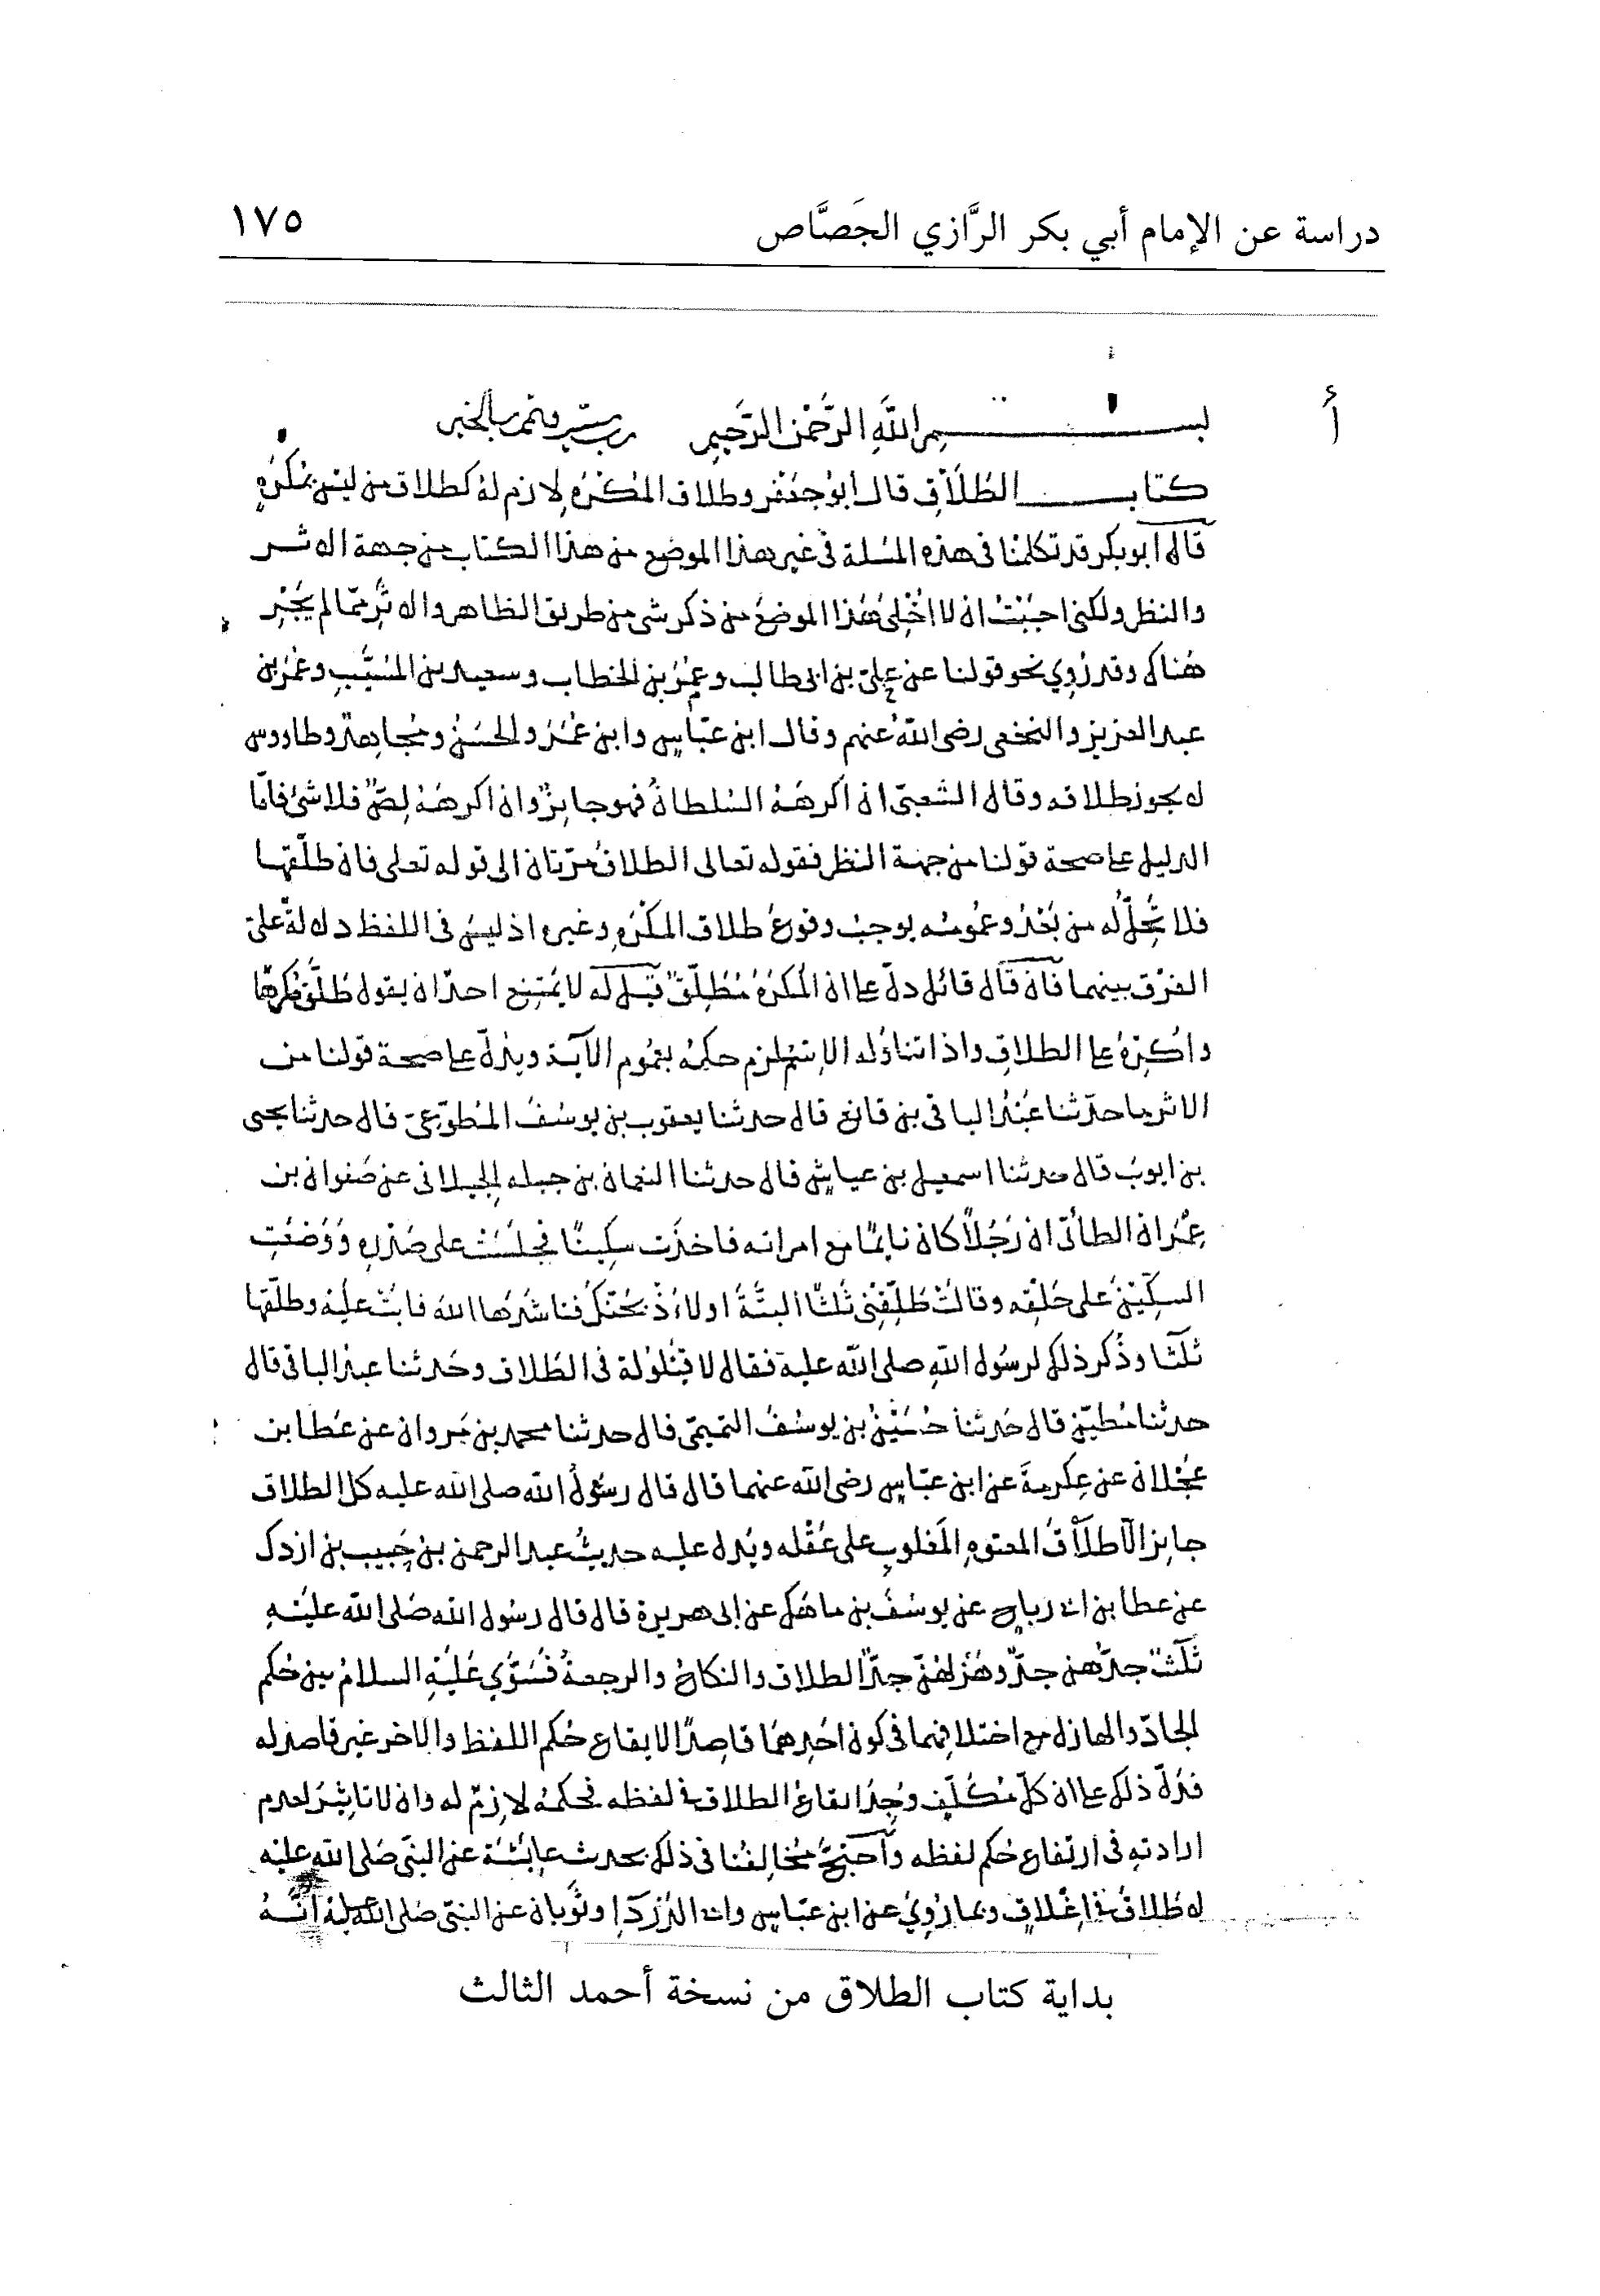 دراسة عن الإمام أبي بكر الرَّازي الجَصَّاص ١٧٥
أ
بسم اللَّهِ الرَّحْمٰنِ الرَّحِيمِ رب يسّر وتمم بالخير
كتاب الطَّلَاقِ قال ابو جعفر وطلاق المكْرَهِ لازم لهُ كطلاق من ليس بمُكْرَهٍ
قال ابو بكر قد تكلمنا فى هذه المسلة فى غير هذا الموضع من هذا الكتاب من جهة الاثر
والنظر ولكنى احببْتُ ان لا اُخْلِىَ هٰذا الموضعَ من ذكر شى من طريق الظاهر والاثرِ ممّا لم يَجْرِ
هُناك وقد رُوِي نحو قولنا عن علىّ بن ابى طالب وعمر بن الخطاب وسعيد بن المسَيَّبِ وعُمَر بن
عبد العزيز والنخعى رضى اللهُ عنهم وقال ابن عبّاسٍ وابن عُمَرَ والحسَنُ ومُجاهدٌ وطاووس
لا يجوز طلاقه وقال الشعبىّ ان اَكرهَهُ السُلطانُ فهو جايزٌ وان اكرهَهُ لِصٌّ فلا شئ فامّا
الدليل على صحة قولنا من جهة النظر فقوله تعالى الطلاقُ مرّتان الى قوله تعلى فان طلّقها
فلا تَحِلُّ له من بَعْدُ وعمُومُه يوجبُ وقوعَ طلاق المكْرَهِ وغيرِه اذ ليسَ فى اللفظ دلالةٌ على
الفَرْقِ بينهما فان قال قائل دلّ على ان المُكرَهَ مُطَلِّقٌ قيل له لا يمْتنِع احدٌ ان يقول طَلَّقَ مُكرَهًا
واُكْرِهَ على الطلاقِ واذا تناوَله الاسْمُ لزم حكمُهُ بعُموم الآية ويدُلّ على صحة قولنا من
الاثر ما حدّثنا عبْدُ الباقى بن قانع قال حدثنا يعقوب بن يوسُفَ المُطوّعىّ قال حدثنا يحيى
بن ايوبَ قال حدثنا اسمعيل بن عياشٍ قال حدثنا النعمان بن جبله الجبلانى عن صَفوان بن
عِمْرانَ الطائىّ ان رَجُلاً كان نايمًا مع امراته فاخذت سِكِينًا فجلسَتْ على صَدْرِهِ وَوَضَعَتِ
السكِّينَ على حَلقِه وقالتْ طَلِّقْنِى ثَلٰثًا البتَّةَ اولاَ ذَبَحْتُكَ فناشدَها اللهَ فابَتْ عليْه وطلّقها
ثلثًا وذُكر ذلك لرسُول اللهِ صلى الله عليه فقال لا قيْلُوْلة فى الطَلاق وحَدثنا عبْدُ الباقى قال
حدثنا مُطيّن قال حَدثنا حُسَيْنُ بن يوسُفَ التميمىّ قال حدثنا محمد بن مَروان عن عَطا بن
عَجْلان عن عِكرمةَ عن ابن عبّاسٍ رضى الله عنهما قال قال رسُولُ الله صلى الله عليه كل الطلاق
جايز الّا طلَاقُ المعتوهِ المَغلوبِ على عَقْله ويُدل عليه حديثُ عبد الرحمن بن حَبيب بن ازدك
عن عطا بن ابى رباحٍ عن يوسُفَ بن ماهَك عن ابى هريرة قال قال رسُول الله صَلى الله عليْهِ
ثَلٰثٌ جدُّهن جدٌّ وهَزلهُنَّ جِدٌّ الطلاق والنكاحُ والرجعةُ فسَوَّى عَليْهِ السلامُ بين حُكم
الجادّ والهازل مع اختلافِهما فى كون احَدِهمَا قاصِدًا لايقاع حُكم اللفظ والاخر غير قاصدٍ له
فدَلّ ذلك على ان كلَّ مُكَلَّفٍ وُجِدَ ايقاعُ الطلاق فى لفظه فحكمُهُ لازِمٌ له وان لا تاثِيْرَ لعدم
ارادتهِ فى ارتفاع حُكم لفظه واحتجَّ مُخَالِفُنا فى ذلك بحديث عايشَة عن النبىّ صَلى الله عليْه
لا طَلاقَ فى اغْلاقٍ وبما رُوِىَ عن ابن عبّاسٍ وابى الدَّرْدَآءِ وثَوبان عن النبىّ صَلى الله عليه انّهُ
بداية كتاب الطلاق من نسخة أحمد الثالث